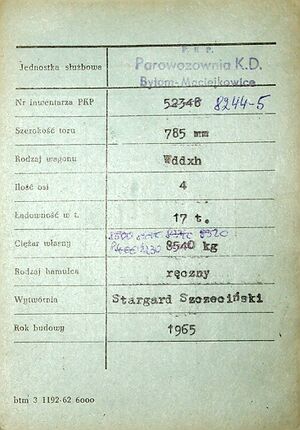 P. K. P.
Parowozownia K.D.
Bytom-Maciejkowice
Jednostka służbowa
Nr inwentarza PKP 52348 8244-5
Szerokość toru 785 mm
Rodzaj wagonu Wddxh
Ilość osi 4
Ładowność w t. 17 t.
Ciężar własny 8540 kg
Rodzaj hamulca ręczny
Wytwórnia Stargard Szczeciński
Rok budowy 1965
btm 3 1192-62 6000